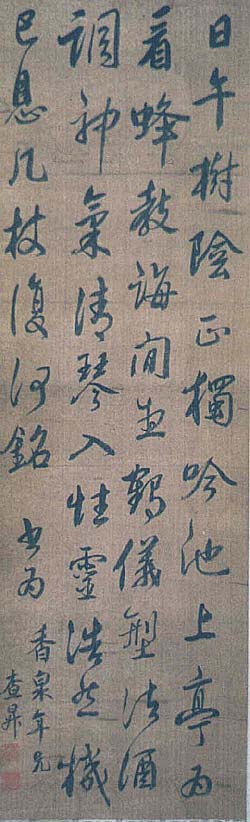 日午樹陰正獨吟池上亭為
看蜂教誨閒鶴儀型法酒
調神氣清琴入性靈浩然機
已息几杖復何銘 書為
香泉年兄
查昇